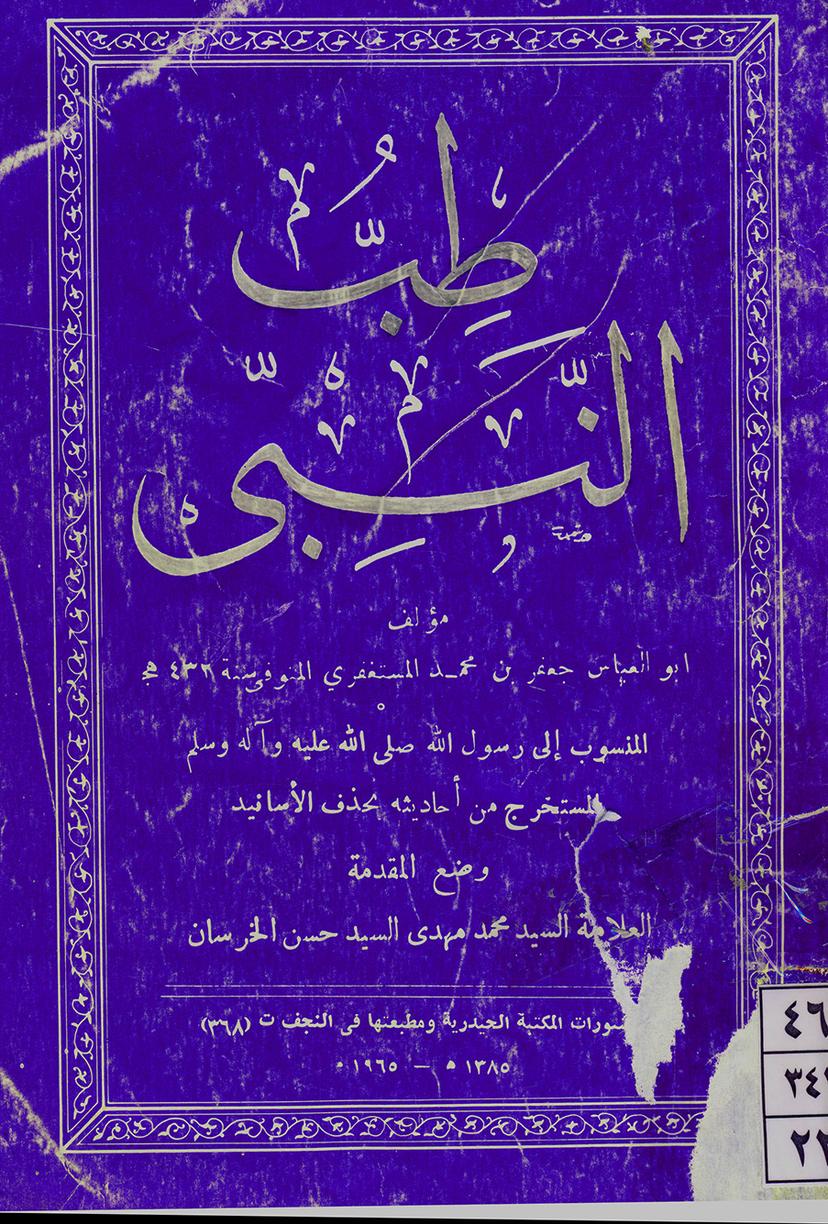 طِبُّ
النَّبِيّ
مؤلف
ابو العباس جعفر بن محمـد المستغفري المتوفى سنة ٤٣٢ هج
المنسوب إلى رسول الله صلى الله عليه وآله وسلم
المستخرج من أحاديثه بحذف الأسانيد
وضع المقدمة
العلامة السيد محمد مهدى السيد حسن الخرسان
المكتبة الحيدرية ومطبعتها في النجف ت (٣٦٨)
١٣٨٥ ه — ١٩٦٥ م
٤٦
٣٤
٢٢